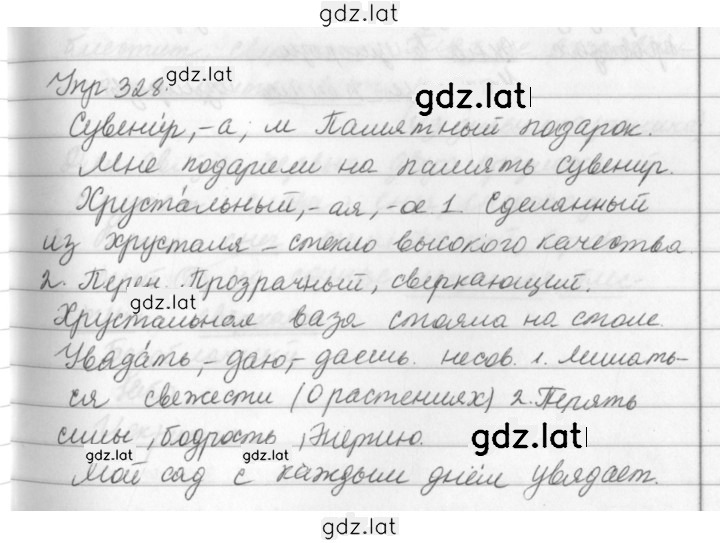 gdz.lat
Упр 328.
gdz.lat
gdz.lat
Сувени́р, -а, м Памятный подарок.
Мне подарили на память сувенир.
Хруста́льный, -ая, -ое 1. Сделанный
из хрусталя - стекло высокого качества.
2. Перен. Прозрачный, сверкающий.
gdz.lat
Хрустальная ваза стояла на столе.
Увяда́ть, -даю, -даешь. несов. 1. Лишать-
ся свежести (О растениях) 2. Терять
силы, бодрость, энергию.
gdz.lat
gdz.lat
gdz.lat
Мой сад с каждым днём увядает.
gdz.lat